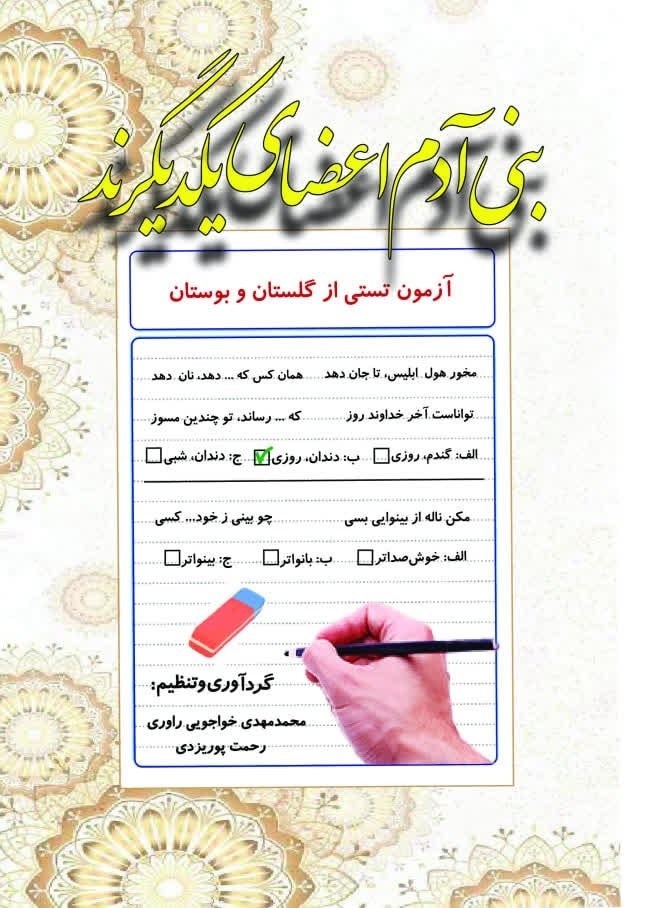 بنی آدم اعضای یکدیگرند
آزمون تستی از گلستان و بوستان
مخور هول ابلیس، تا جان دهد همان کس که ... دهد، نان دهد
تواناست آخر خداوند روز که ... رساند، تو چندین مسوز
الف: گندم، روزی ب: دندان، روزی ج: دندان، شبی
مکن ناله از بینوایی بسی چو بینی ز خود... کسی
الف: خوش‌صداتر ب: بانواتر ج: بینواتر
گردآوری و تنظیم:
محمدمهدی خواجویی راوری
رحمت پوریزدی